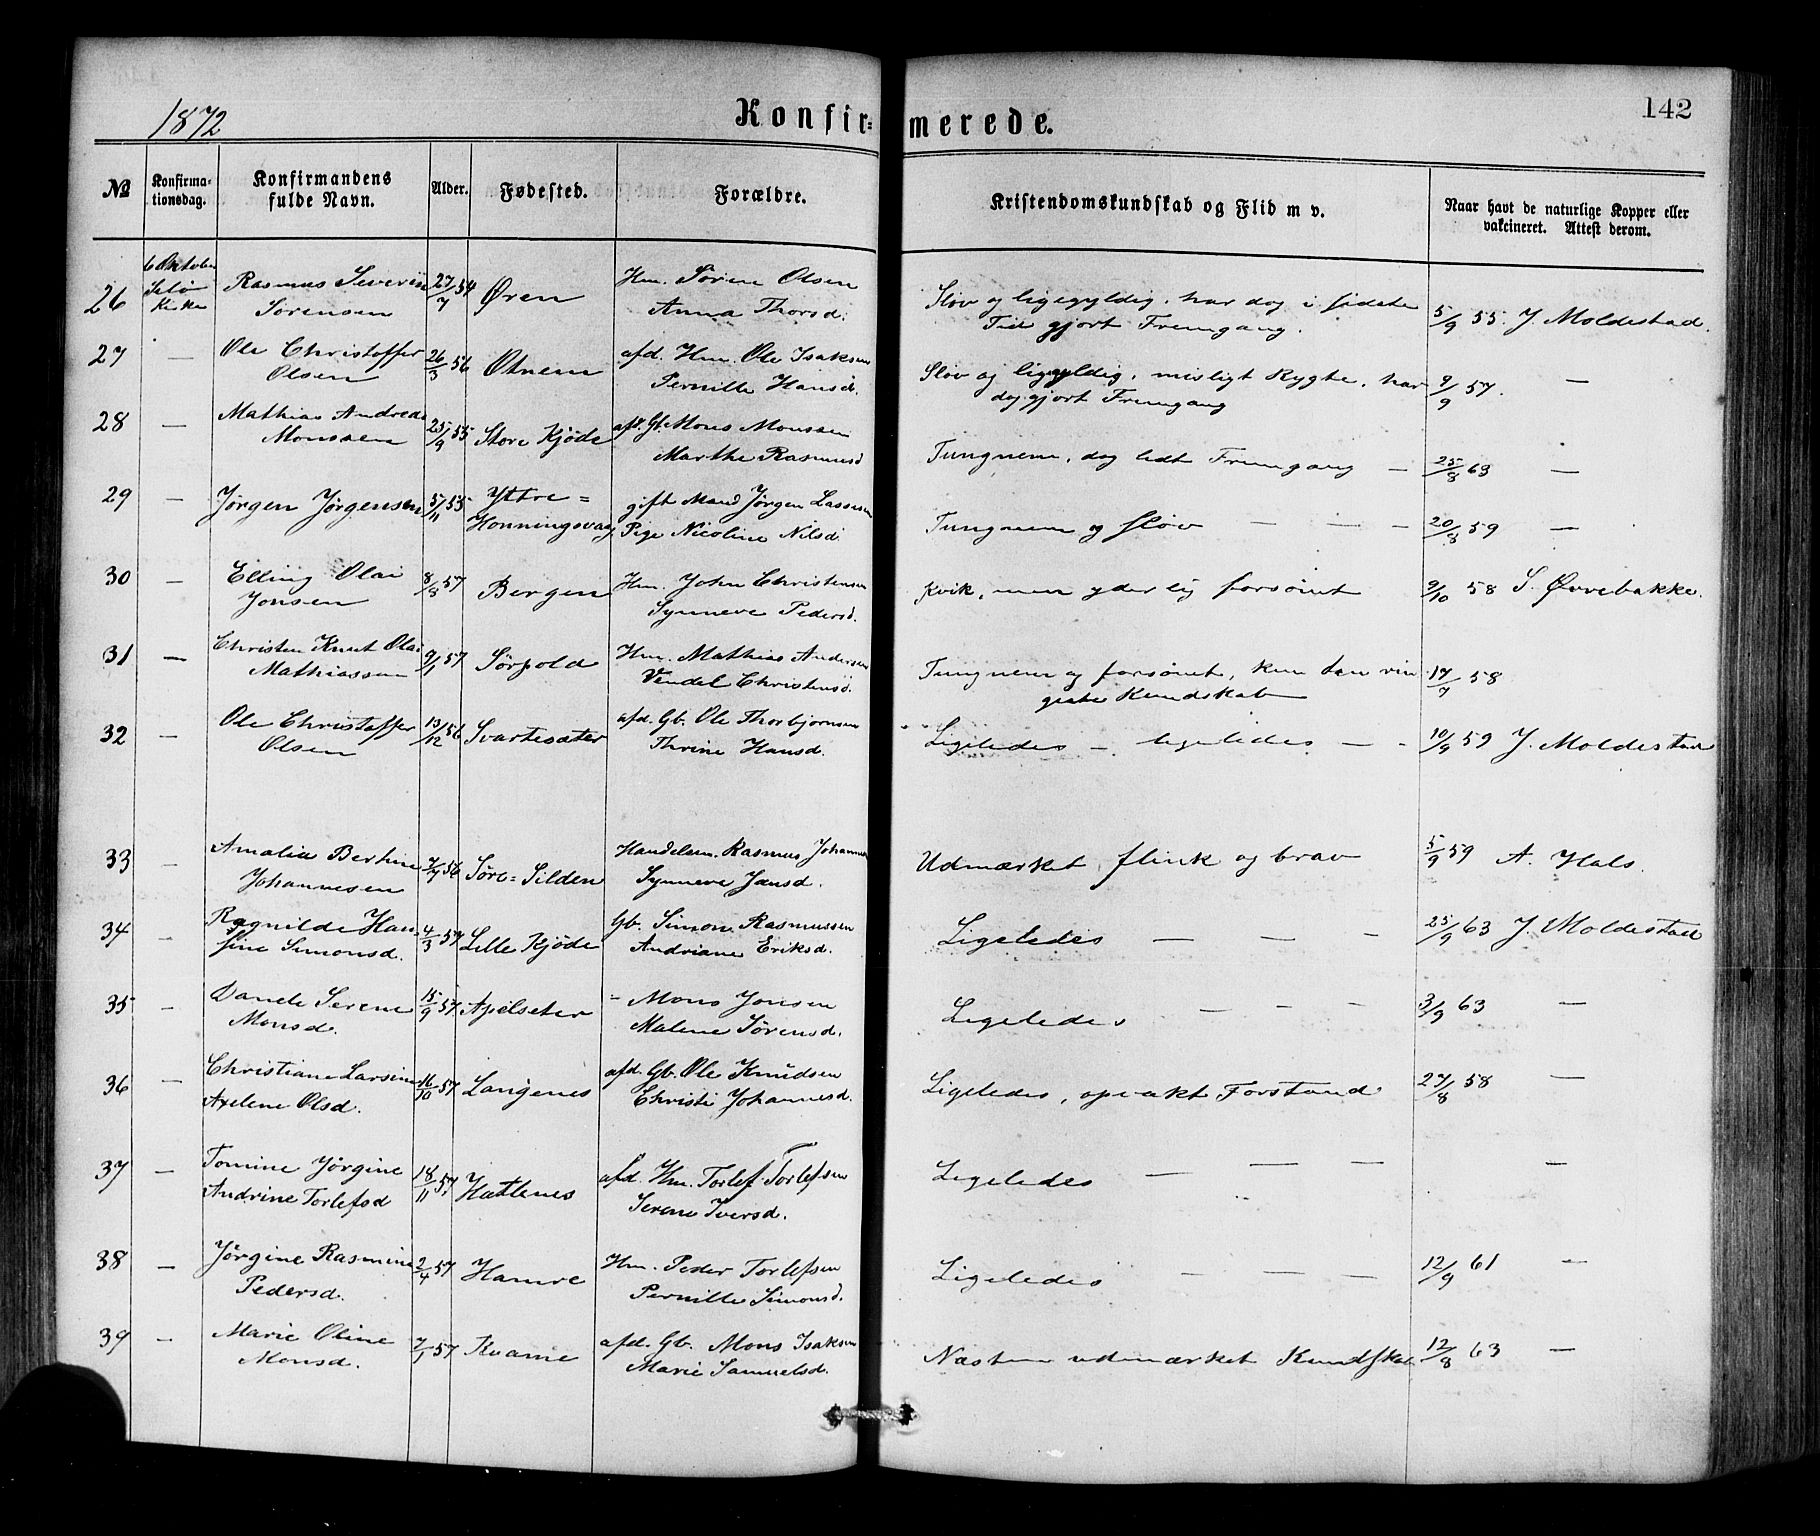 1872 Konfir= merede. 142
№ Konfirma-tionsdag. Konfirmandens fulde Navn. Alder. Fødested. Forældre. Kristendomskundskab og Flid m v. Naar havt de naturlige Kopper eller vakcineret. Attest derom.
26 6 Oktober Selø Kirke Rasmus Severin Sørensen 27/7 54 Øren Hm. Søren Olsen Anna Thorsd. Sløv og ligegyldig, har dog i sidste Tid gjort Fremgang. 5/9 55 J. Moldestad.
27 — Ole Christoffer Olsen 26/3 56 Otnem afd. Hm. Ole Isaksen Pernille Hansd. Sløv og ligegyldig, misligt Rygte, har dog gjort Fremgang 9/9 57. —
28 — Mathias Andreas Monssen 25/9 55 Store Kjöde afd. Gb. Mons Monssen Marthe Rasmusd Tungnem, dog lidt Fremgang — 25/8 63 —
29 — Jørgen Jørgensen 5/11 55 Yttre= Honningsvaag gift Mand Jørgen Lassesen Pige Nicoline Nilsd. Tungnem og sløv — — — 20/8 59 —
30 — Elling Olai Jonsen 8/8 57 Bergen Hm. John Christensen Synneve Pedersd. Kvik, men yderlig forsømt 9/10 58 S. Øvrebakke.
31 — Christen Knut Olai Mathiassen 9/1 57 Sørpold Hm. Mathias Andersen Vendel Christensd. Tungnem og forsømt, kun den ringeste Kundskab 17/7 58
32 — Ole Christoffer Olsen 13/12 56 Svartesæter afd. Gb. Ole Thorbjørnsen Thrine Hansd. Ligeledes — ligeledes — - 10/9 59 J. Moldestad
33 — Amalia Bertine Johannesen 7/7 56 Søre=Silden Handelsm. Rasmus Johannes Synneve Jansd. Udmærket, flink og brav 5/9 59 A. Hals.
34 — Ragnilde Han= sine Simonsd. 4/3 57 Lille Kjöde Gb. Simon Rasmussen Andriane Eriksd. Ligeledes — — — 25/9 63 J. Moldestad
35 — Danele Serene Monsd. 15/9 57 Apelseter = Mons Jonsen Malene Sørensd. Ligeledes — — — 3/9 63 —
36 — Christiane Larsine Axelene Olsd. 16/10 57 Langenes afd. Gb. Ole Knudsen Christi Johannesd. Ligeledes, opvakt Forstand 27/8 58 —
37 — Tomine Jørgine Andrine Torlefsd 18/11 57. Hatlenes afd. Hm. Torlef Torlefsen Serene Iversd. Ligeledes — — — —
38 — Jørgine Rasmine Pedersd. 2/4 57 Hamre Hm. Peder Torlefsen Pernille Simonsd. Ligeledes — — — 12/9 61 —
39 — Marie Oline Monsd. 7/1 57 Kvame afd. Gb. Mons Isaksen Marie Samuelsd. Næsten udmærket Kundskab 12/8 63 —